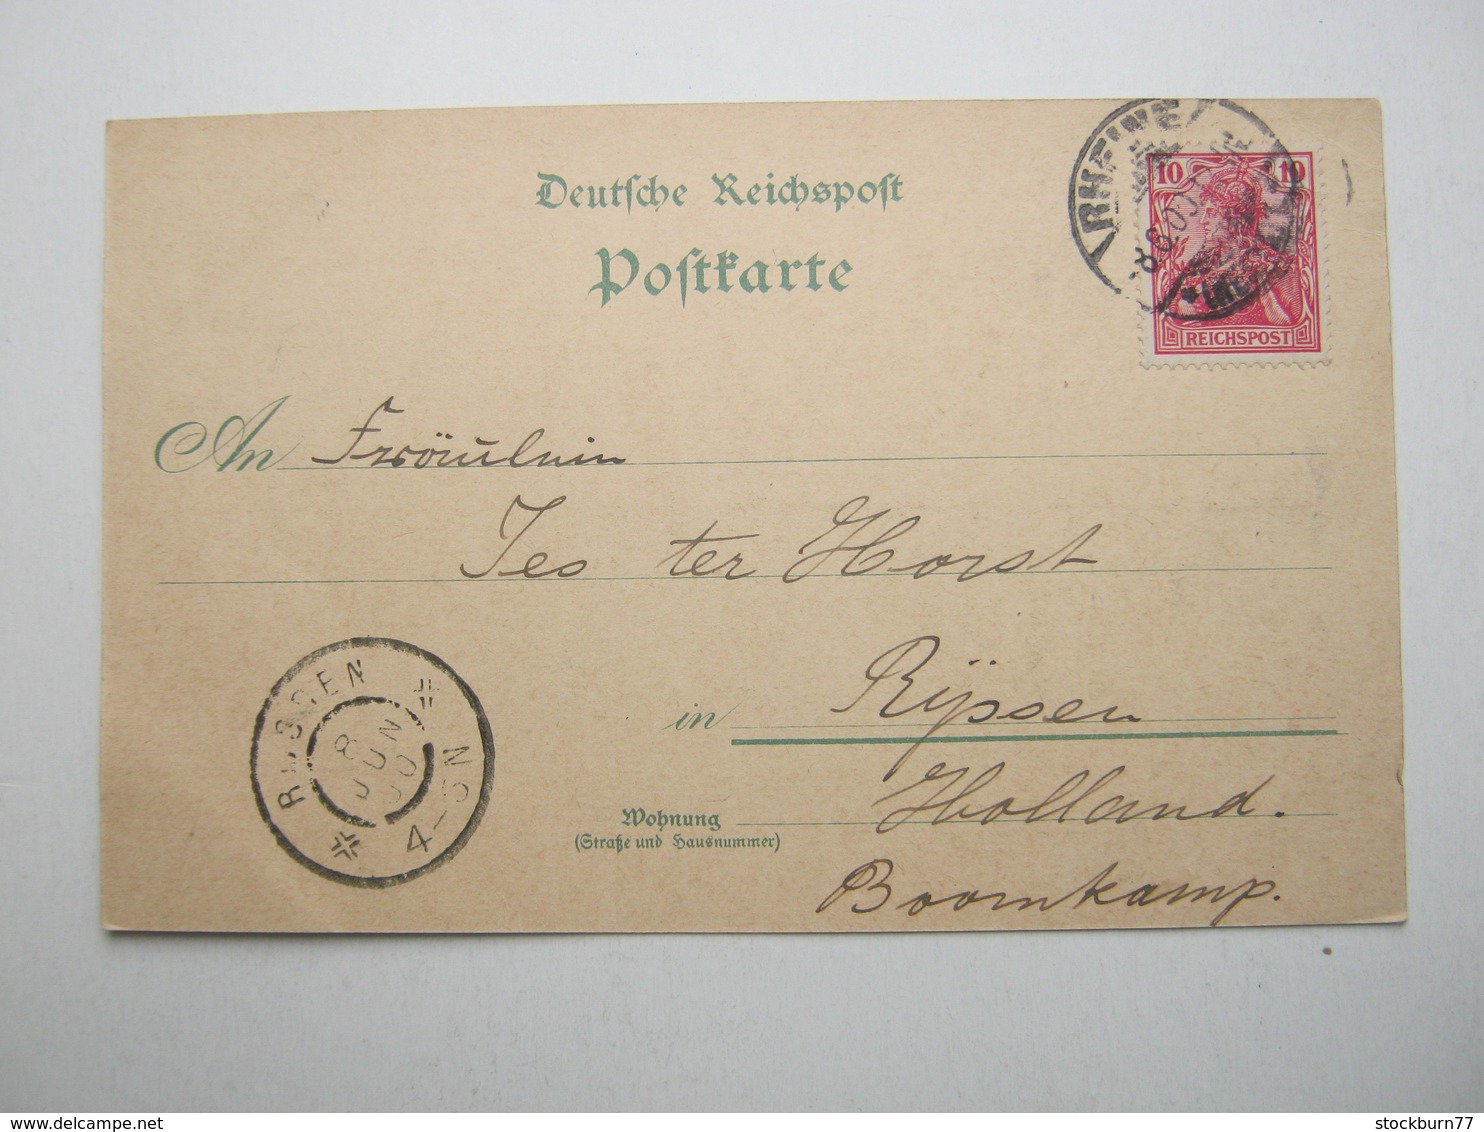 Deutsche Reichspost
Postkarte
RHEINE
8.6.00
10 10
REICHSPOST
An Fräulein
Jes ter Horst
in Rÿssen
Holland.
Wohnung
(Straße und Hausnummer)
Boomkamp.
RIJSSEN
8 JUN 00
4-5N
stockburn77